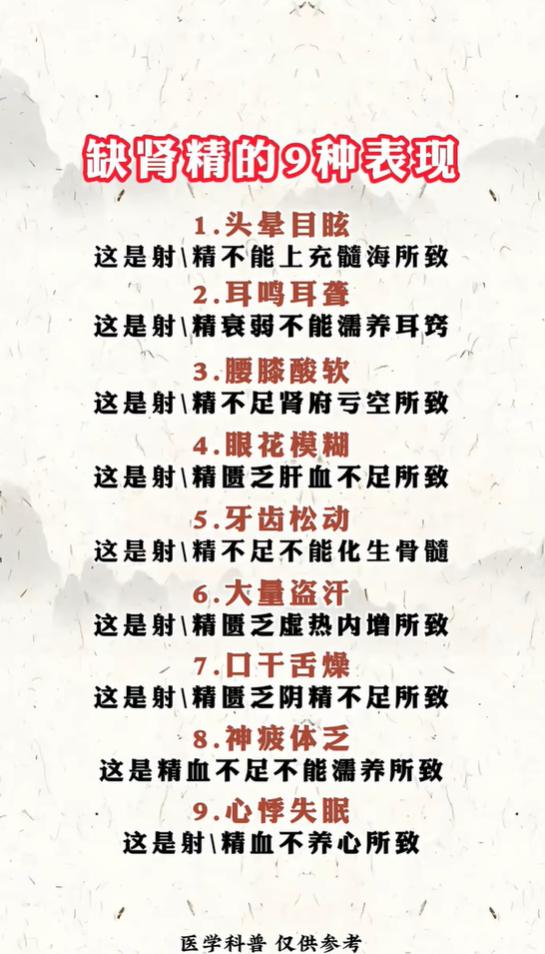 缺肾精的9种表现
1.头晕目眩
这是射\精不能上充髓海所致
2.耳鸣耳聋
这是射\精衰弱不能濡养耳窍
3.腰膝酸软
这是射\精不足肾府亏空所致
4.眼花模糊
这是射\精匮乏肝血不足所致
5.牙齿松动
这是射\精不足不能化生骨髓
6.大量盗汗
这是射\精匮乏虚热内增所致
7.口干舌燥
这是射\精匮乏阴精不足所致
8.神疲体乏
这是精血不足不能濡养所致
9.心悸失眠
这是射\精血不养心所致
医学科普 仅供参考